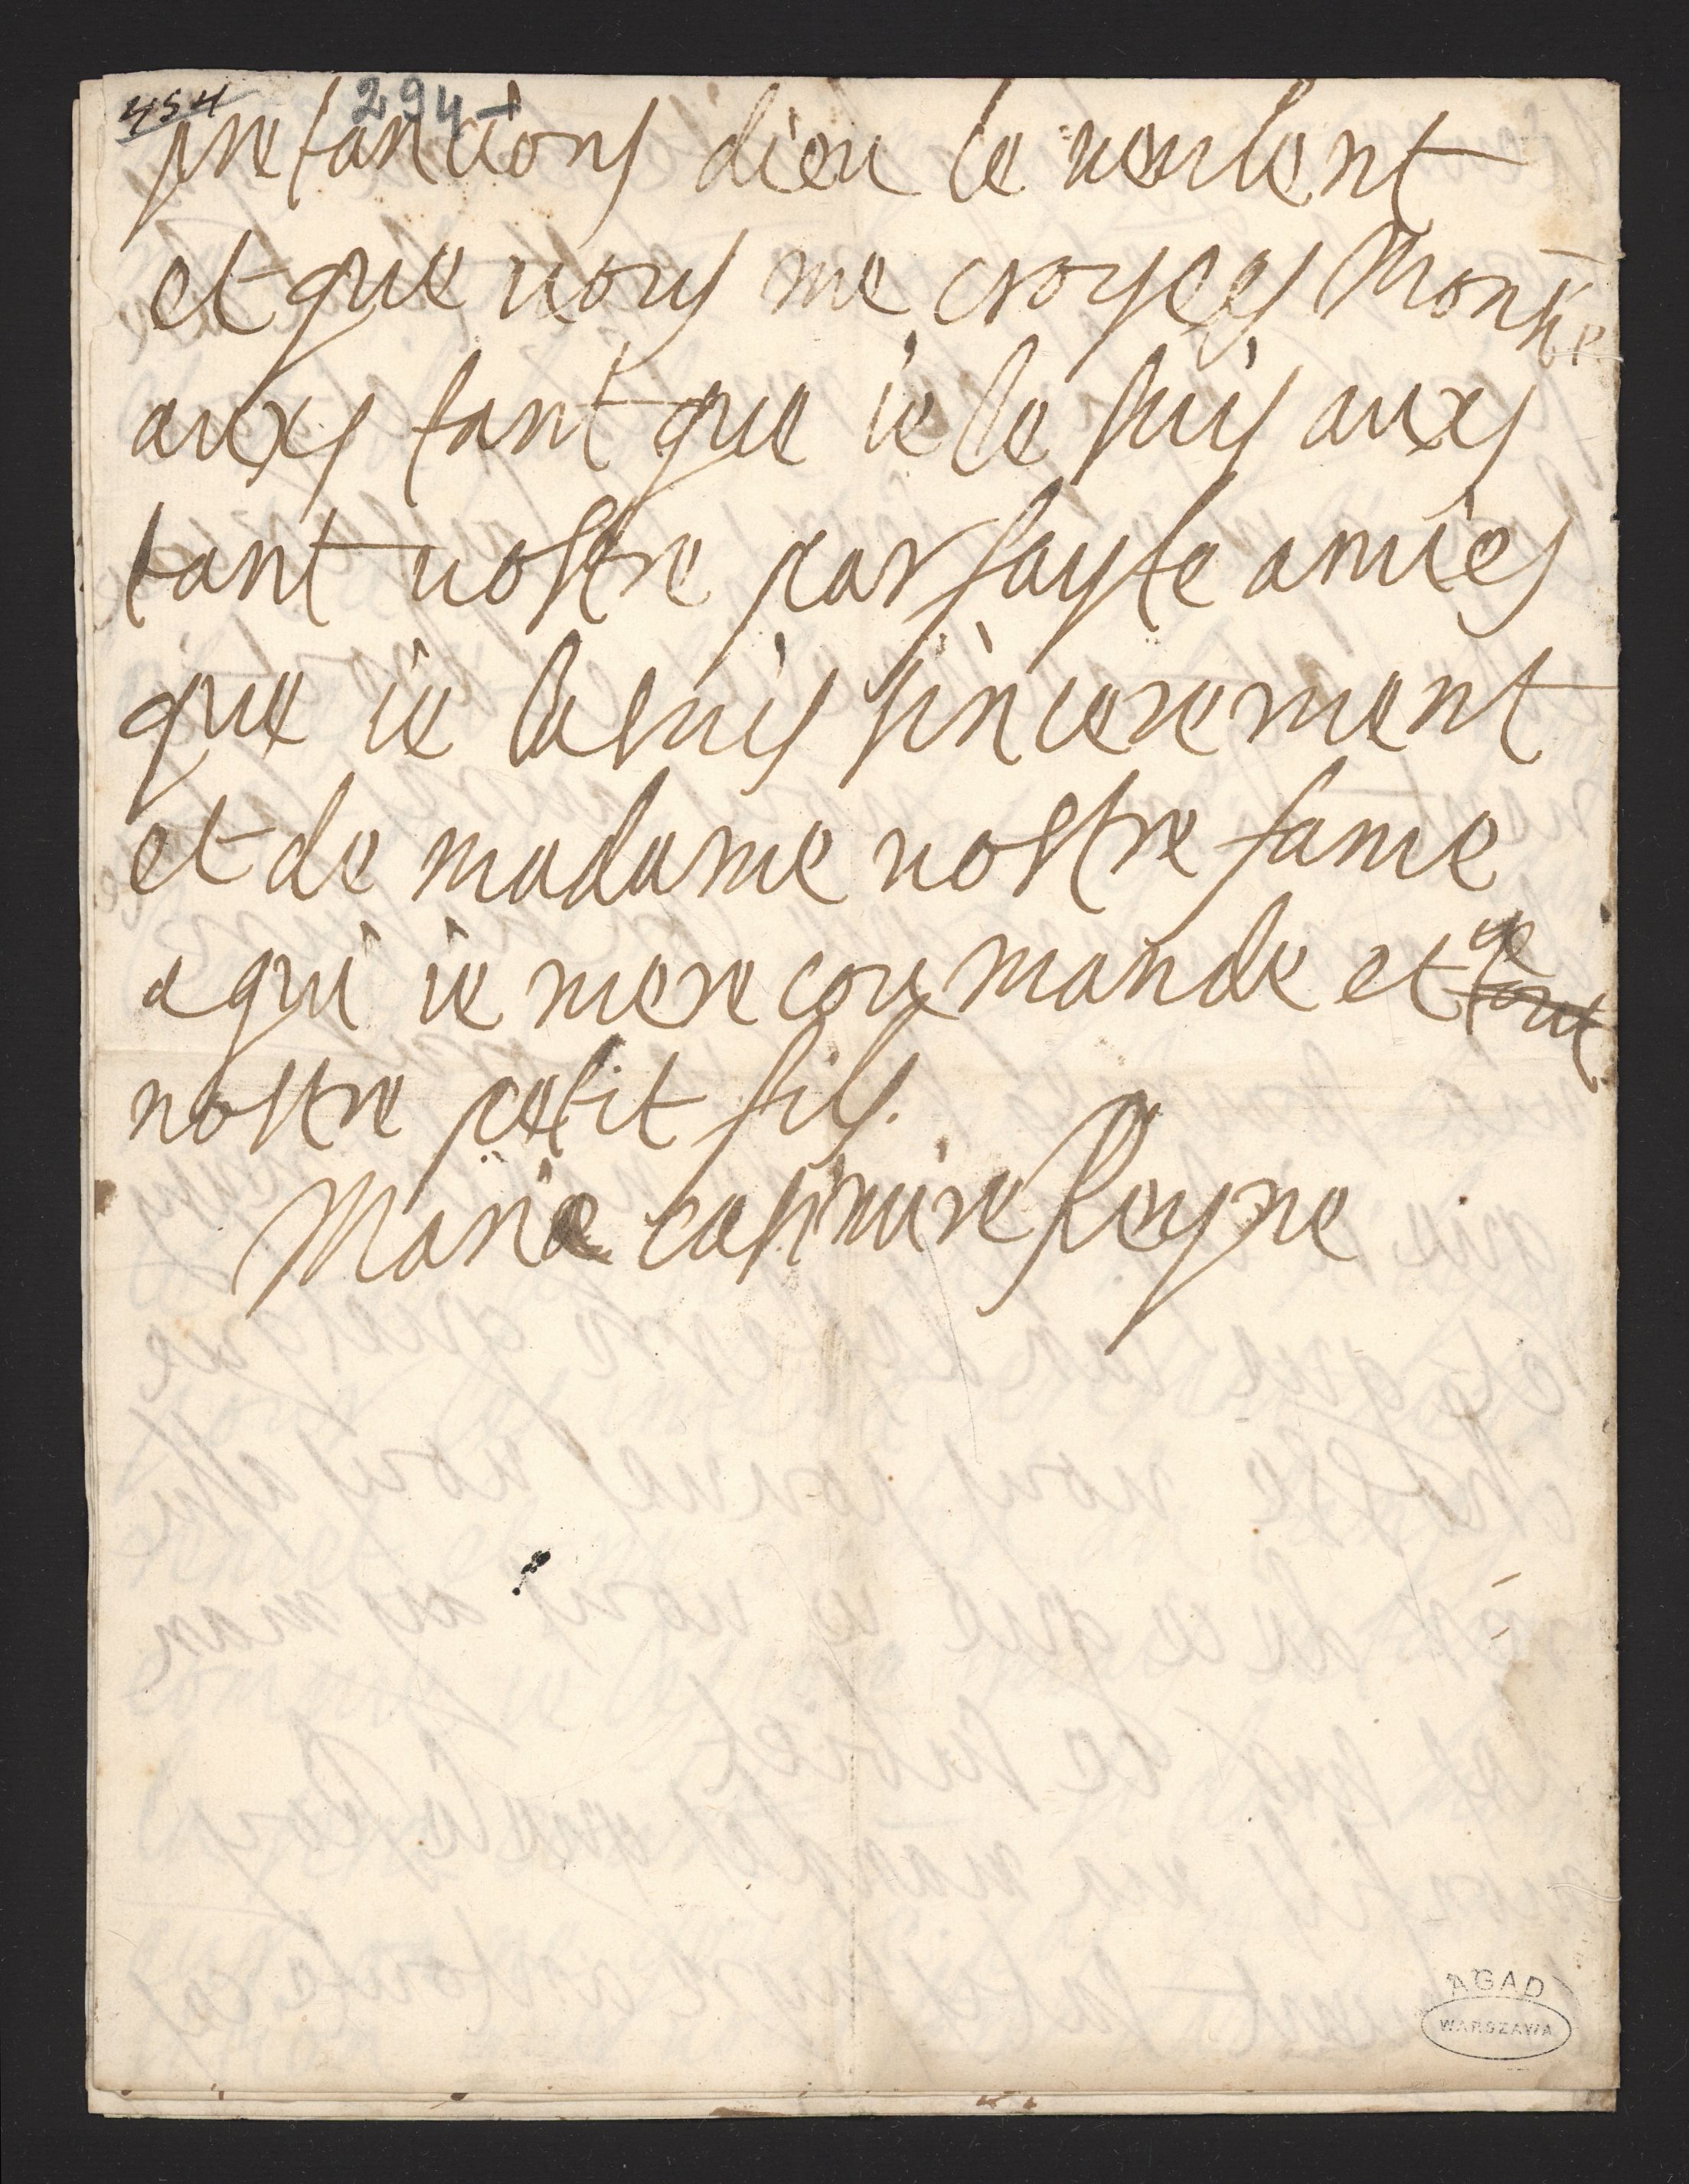 454
294
pretantions dieu le veulent
et que vous me croyees Monsr
auxs tant que ie le suis auxs
tant vostre parfayte amies
que ie le suis sincerement
et de madame vostre fame
a qui ie merecommande et
vostre petit fils.
Marie casimire Reyne
AGAD
WARSZAWA